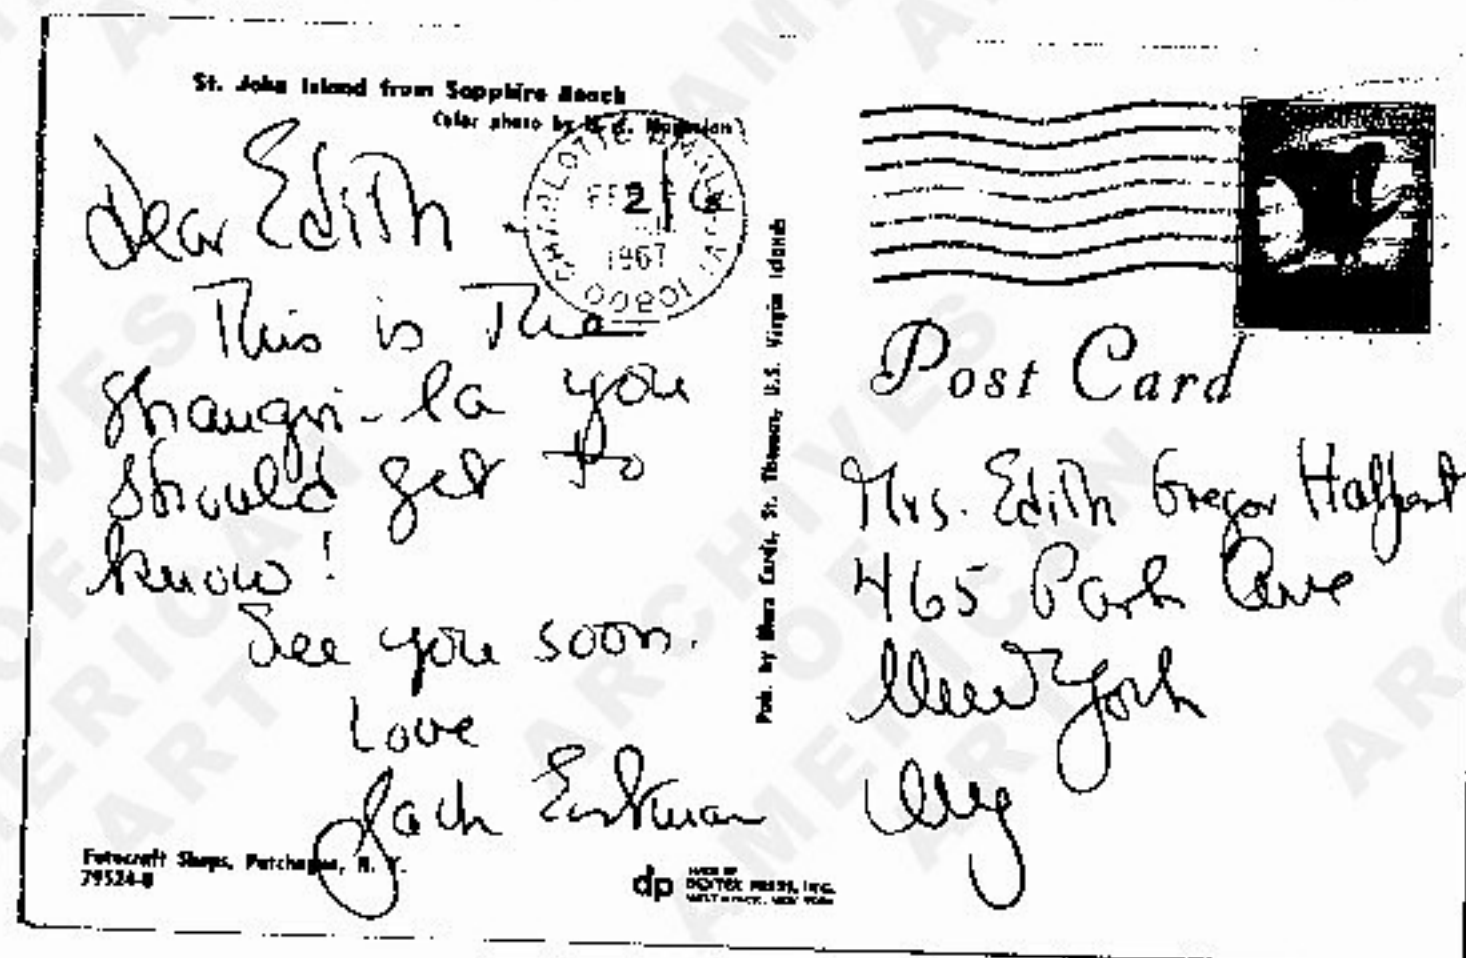 St. John Island from Sapphire Beach
Color photo by
CHARLOTTE AMALIE
FEB
2
1967
00801
Dear Edith -
This is The
Shangri-la you
should get to
know!
See you soon.
Love
Jack Eastman
Futocraft Shops, Patchogue, N. Y.
79524-B
Pub. by Cards, St. Thomas, U.S. Virgin Islands
dp
MADE BY
DEXTER PRESS, INC.
WEST NYACK, NEW YORK
Post Card
Mrs. Edith Gregor Halpert
465 Park Ave
New York
NY
ARCHIVES
OF
AMERICAN
ART